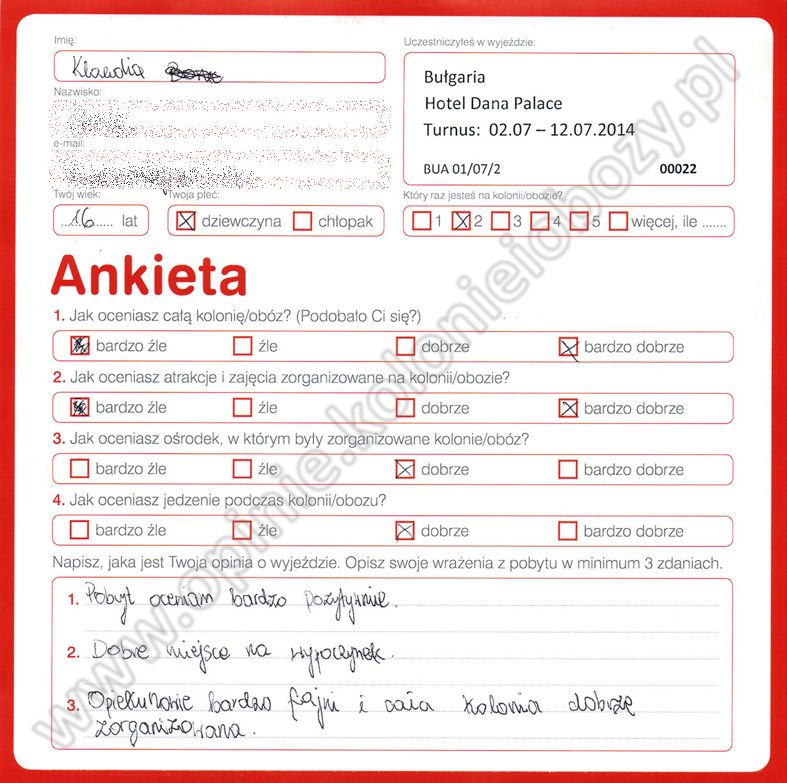 Imię:
Klaudia
Uczestniczyłeś w wyjeździe:
Bułgaria
Hotel Dana Palace
Turnus: 02.07 – 12.07.2014
BUA 01/07/2 00022
Nazwisko:
e-mail:
Twój wiek:
16 lat
Twoja płeć:
dziewczyna chłopak
Który raz jesteś na kolonii/obozie?
1 2 3 4 5 więcej, ile .......
Ankieta
1. Jak oceniasz całą kolonię/obóz? (Podobało Ci się?)
bardzo źle źle dobrze bardzo dobrze
2. Jak oceniasz atrakcje i zajęcia zorganizowane na kolonii/obozie?
bardzo źle źle dobrze bardzo dobrze
3. Jak oceniasz ośrodek, w którym były zorganizowane kolonie/obóz?
bardzo źle źle dobrze bardzo dobrze
4. Jak oceniasz jedzenie podczas kolonii/obozu?
bardzo źle źle dobrze bardzo dobrze
Napisz, jaka jest Twoja opinia o wyjeździe. Opisz swoje wrażenia z pobytu w minimum 3 zdaniach.
1. Pobyt oceniam bardzo pozytywnie.
2. Dobre miejsce na wypoczynek.
3. Opiekunowie bardzo fajni i cała kolonia dobrze
zorganizowana.
www.opinie.kolonieiobozy.pl